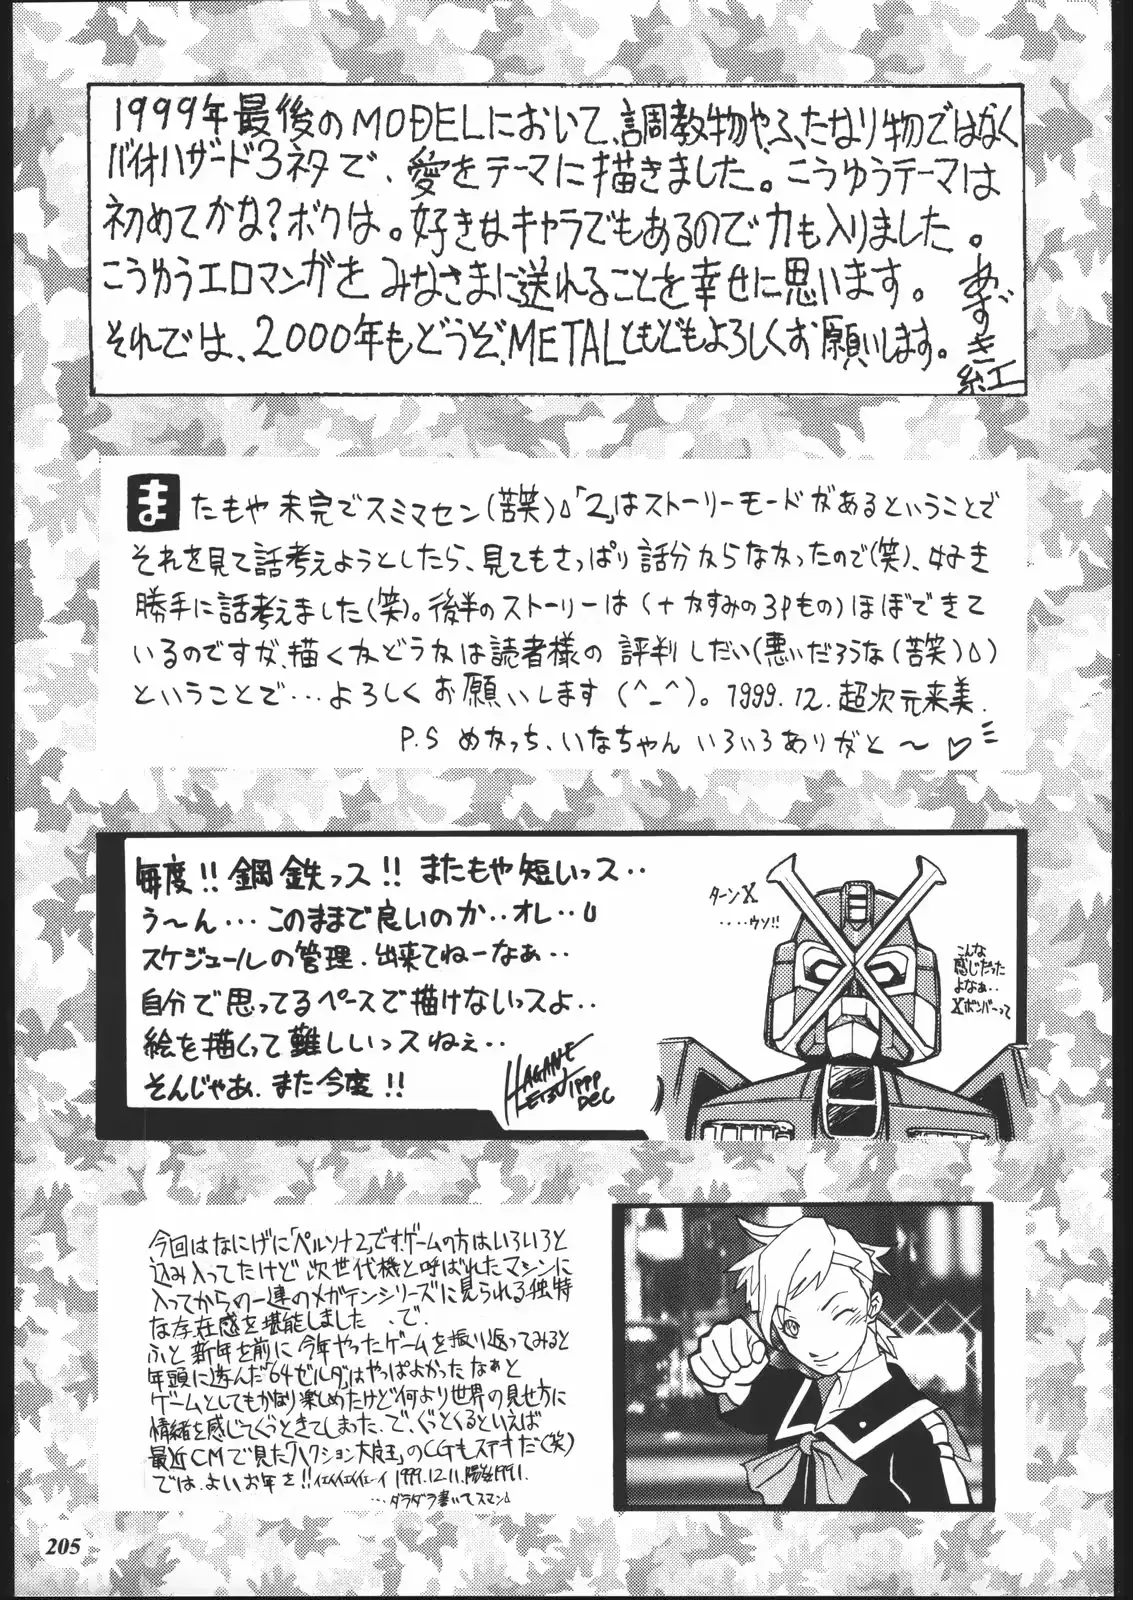 1999年最後のMODELにおいて、調教物やふたなり物ではなく
バイオハザード3ネタで、愛をテーマに描きました。こうゆうテーマは
初めてかな?ボクは。好きなキャラでもあるので力も入りました。
こうゆうエロマンガをみなさまに送れることを幸せに思います。
それでは、2000年もどうぞ、METALともどもよろしくお願いします。
あずき紅
またもや未完でスミマセン(苦笑)「2」はストーリーモードがあるということで
それを見て話考えようとしたら、見てもさっぱり話分からなかったので(笑)、好き
勝手に話考えました(笑)。後半のストーリーは(+かすみの3Pもの)ほぼできて
いるのですが、描くかどうかは読者様の評判しだい(悪いだろうな(苦笑))
ということで…よろしくお願いします(^_^)。1999.12.超次元来美.
P.S めなっち、いなちゃん いろいろありがと〜♡
毎度!!鋼鉄っス!!またもや短いっス‥
う〜ん…このままで良いのか‥オレ‥
スケジュールの管理.出来てねーなぁ‥
自分で思ってるペースで描けないっスよ‥
絵を描くって難しいっスねぇ‥
そんじゃあ.また今度!!
HAGANE
TETSU 1999
DEC
ターンX
‥‥ウソ!!
こんな
感じだった
よなぁ‥
Xボンバーって
今回はなにげに「ペルソナ2」です、ゲームの方はいろいろと
込み入ってたけど次世代機と呼ばれたマシンに
入ってからの一連のメガテンシリーズに見られる独特
な存在感を堪能しました、で、
ふと新年を前に今年やったゲームを振り返ってみると
年頭に遊んだ「64ゼルダ」はやっぱよかったなぁと
ゲームとしてもかなり楽しめたけど何より世界の見せ方に
情緒を感じてぐっときてしまった、で、ぐっとくるといえば
最近CMで見た「ハクション大魔王」のCGもステキだ(笑)
では、よいお年を!!イェイイェイイェーイ 1999.12.11.
…ダラダラ書いてスマン
205